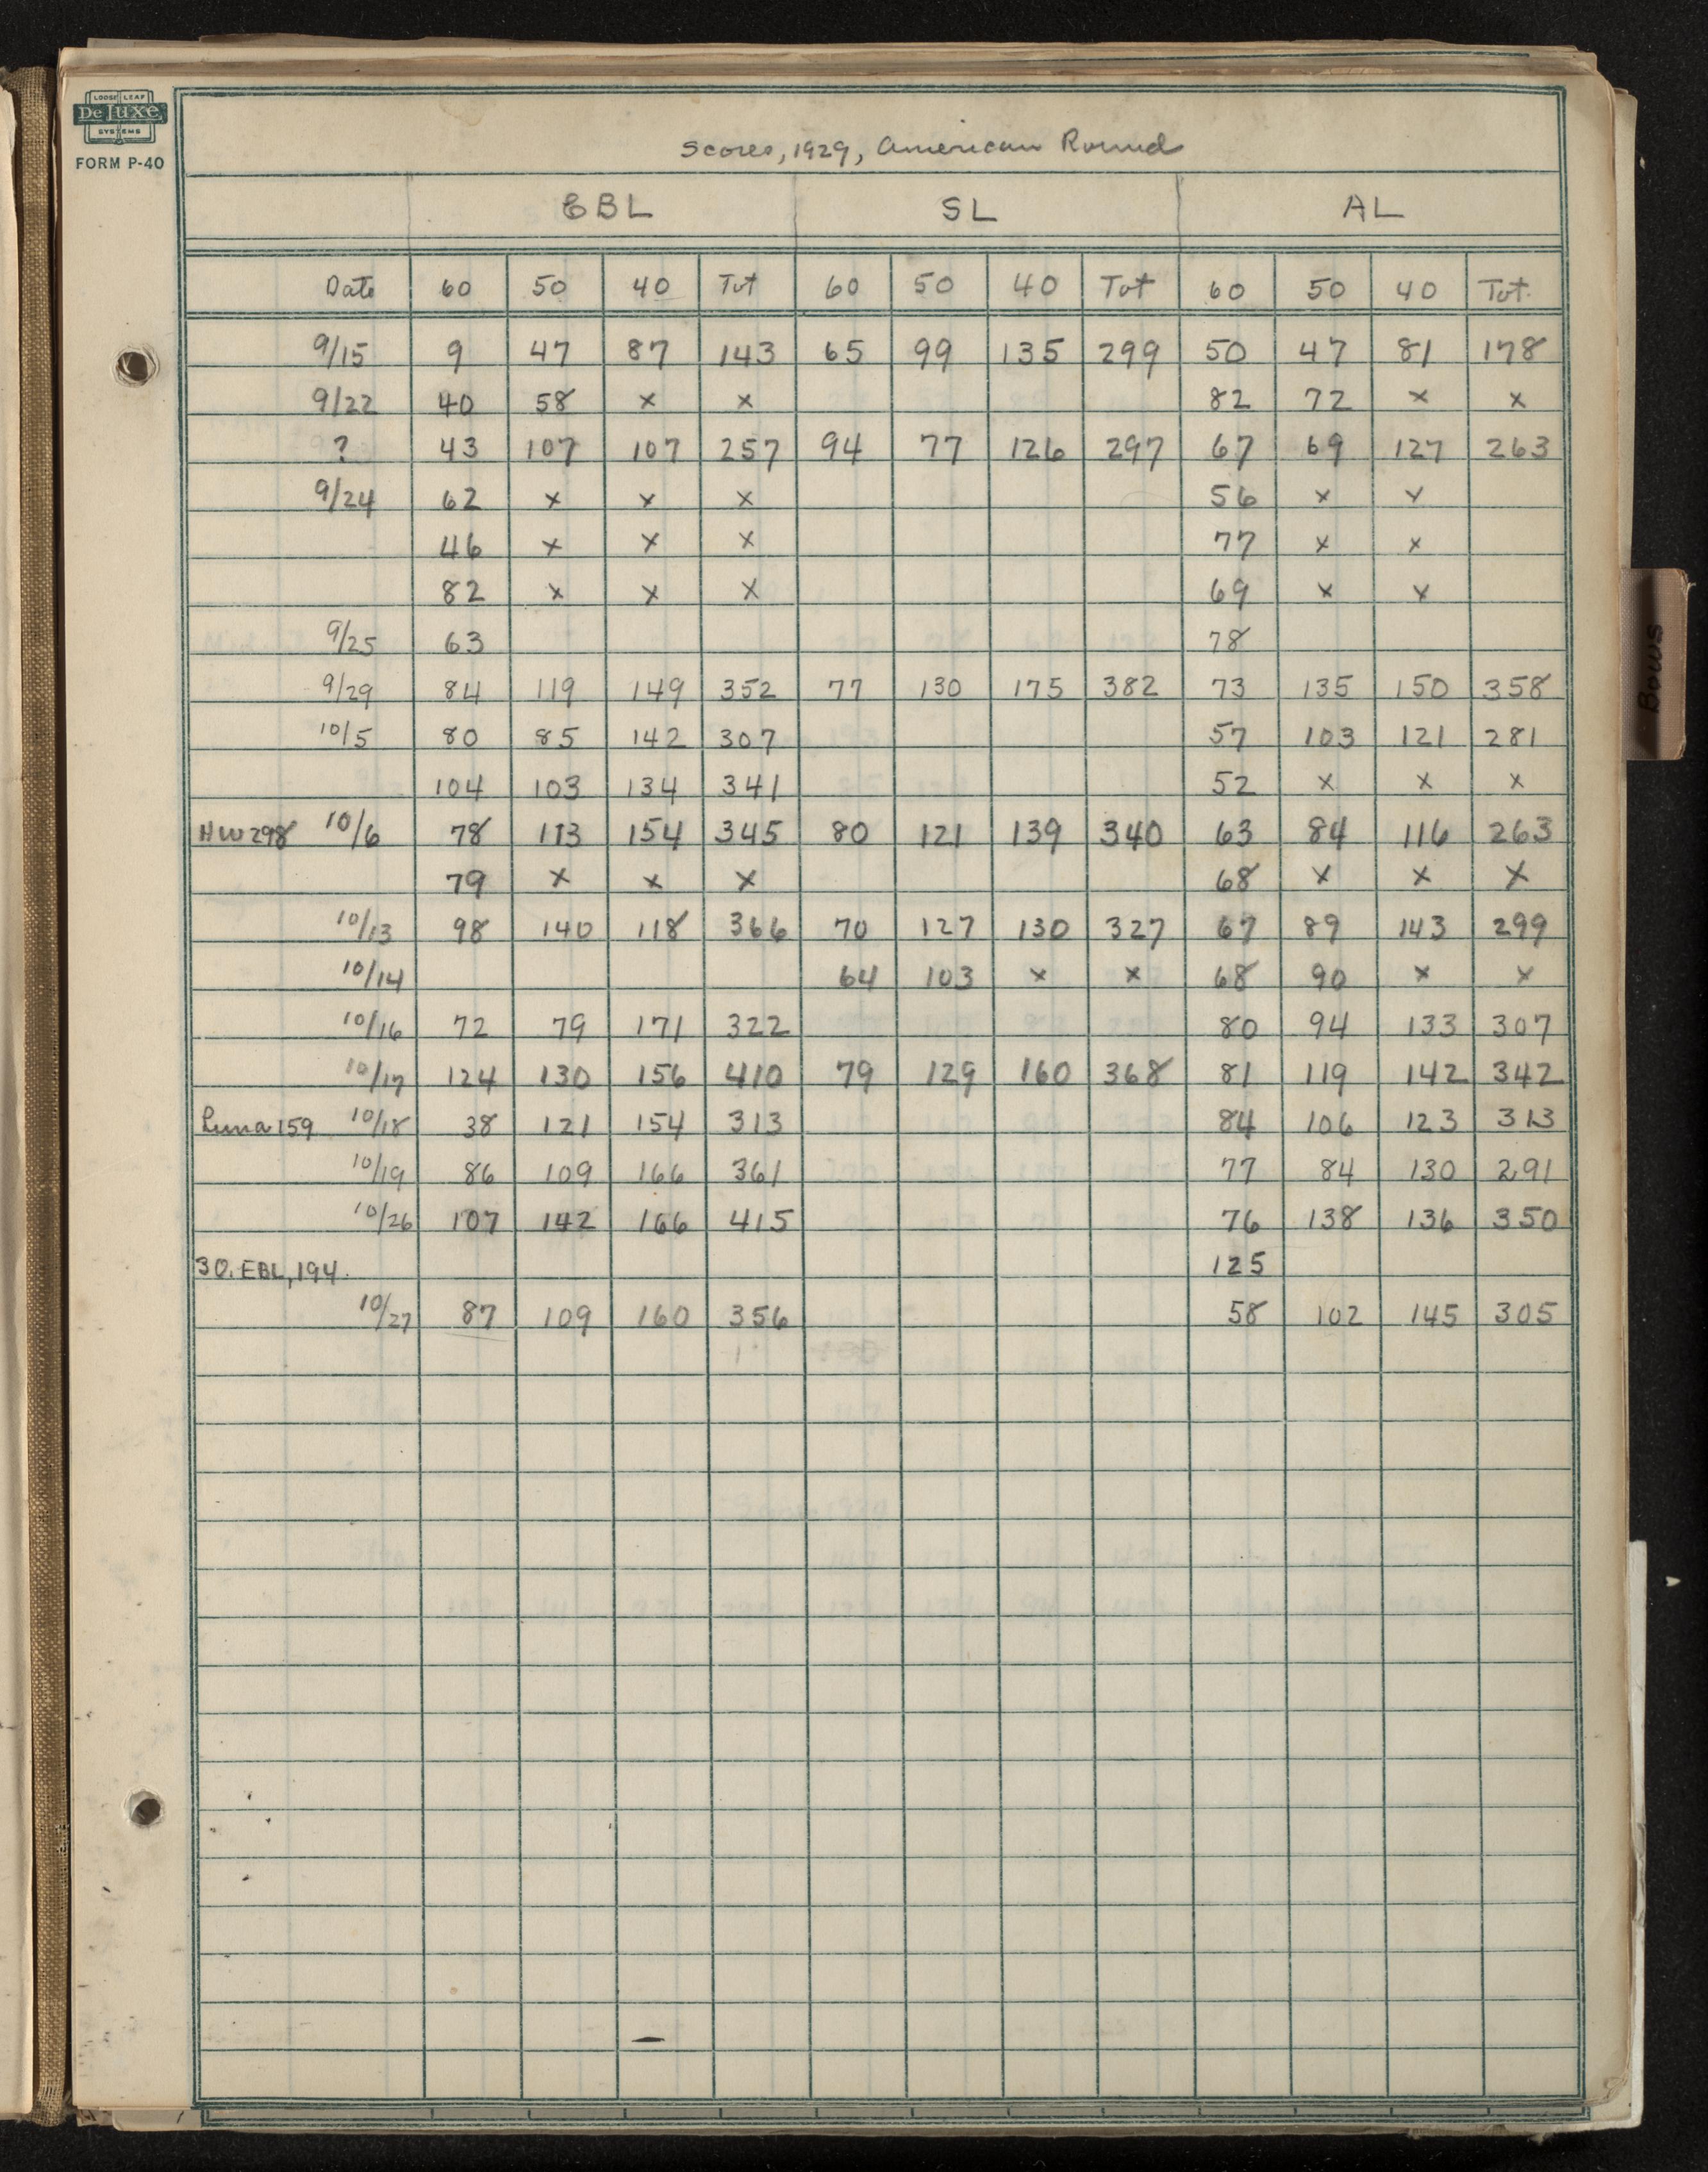 LOOSE LEAF
De Luxe
SYSTEMS
FORM P-40
Scores, 1929, American Round
EBL SL AL
Date 60 50 40 Tot 60 50 40 Tot 60 50 40 Tot.
9/15 9 47 87 143 65 99 135 299 50 47 81 178
9/22 40 58 x x 82 72 x x
? 43 107 107 257 94 77 126 297 67 69 127 263
9/24 62 x x x 56 x x
46 x x x 77 x x
82 x x x 69 x x
9/25 63 78
9/29 84 119 149 352 77 130 175 382 73 135 150 358
10/5 80 85 142 307 57 103 121 281
104 103 134 341 52 x x x
HW 298 10/6 78 113 154 345 80 121 139 340 63 84 116 263
79 x x x 68 x x x
10/13 98 140 118 366 70 127 130 327 67 89 143 299
10/14 64 103 x x 68 90 x x
10/16 72 79 171 322 80 94 133 307
10/17 124 130 156 410 79 129 160 368 81 119 142 342
Luna 159 10/18 38 121 154 313 84 106 123 313
10/19 86 109 166 361 77 84 130 291
10/26 107 142 166 415 76 138 136 350
30. EBL, 194. 125
10/27 87 109 160 356 58 102 145 305
Bows